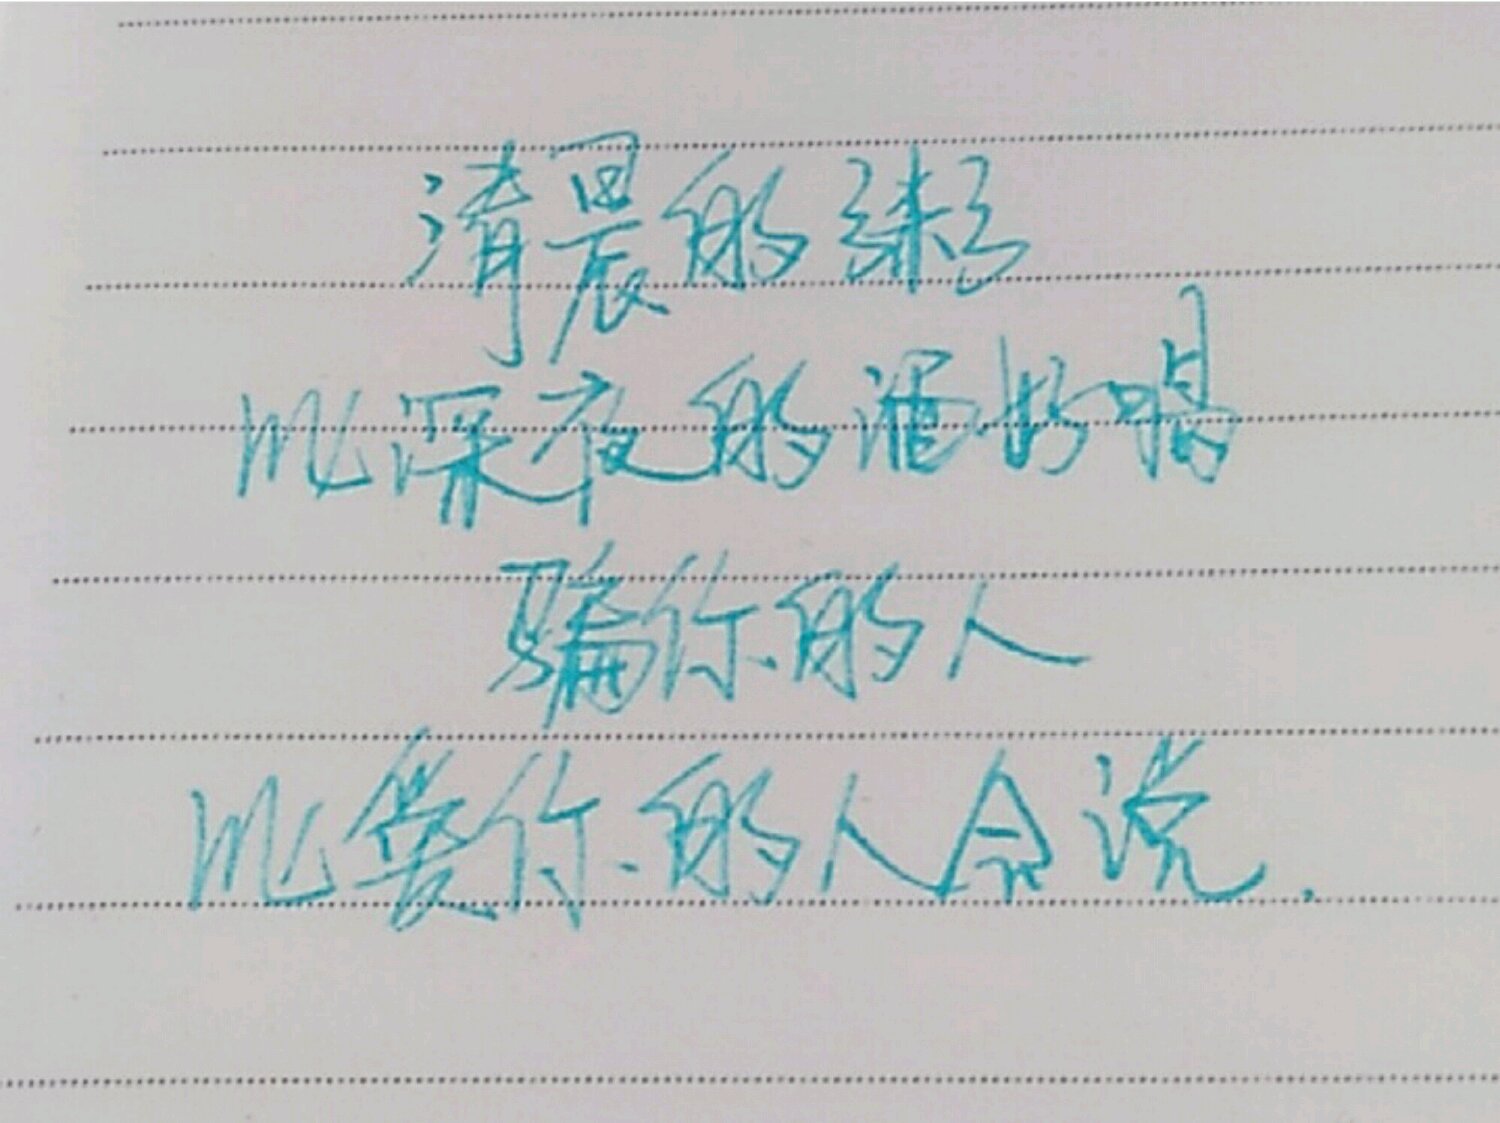 清晨的粥
比深夜的酒好喝
骗你的人
比爱你的人会说.